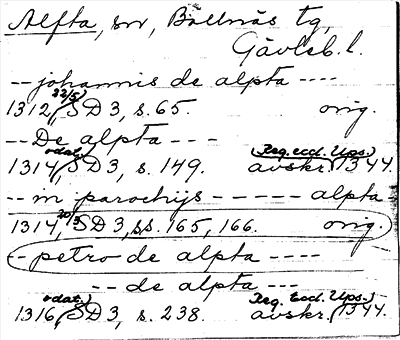 Alfta, sn, Bollnäs tg,
Gävleb. l.
-- johannis de alpta ----
22/5)
1312, SD 3, s. 65. orig.
-- De alpta ---
odat.) (Reg. eccl. Ups.)
1314, SD 3, s. 149. avskr. 1344.
-- in parochijs ----- alpta
1314, SD 3, ss. 165, 166. orig.
-- petro de alpta ----
-- de alpta ---
odat.) Reg. Eccl. Ups.)
1316, SD 3, s. 238. avskr. (1344.